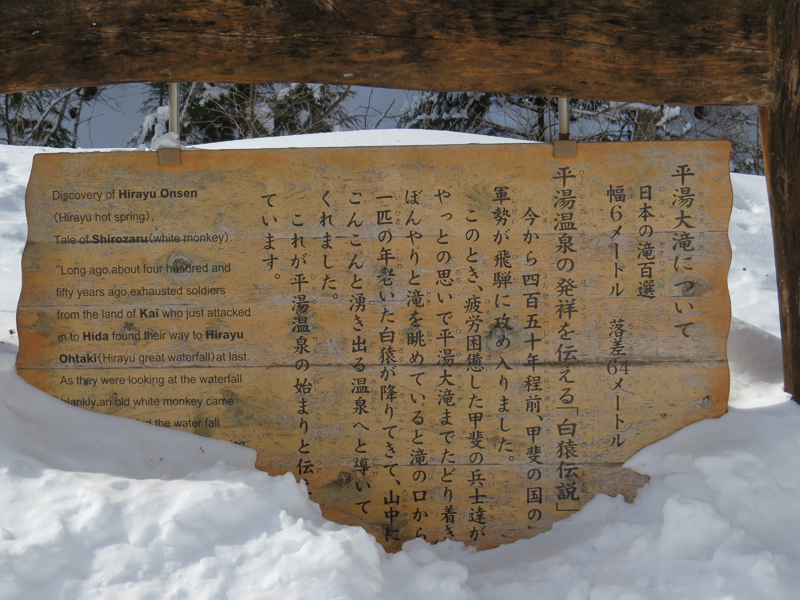 平湯大滝について
日本の滝百選
幅6メートル　落差64メートル
平湯温泉の発祥を伝える「白猿伝説」
今から四百五十年程前、甲斐の国の
軍勢が飛騨に攻め入りました。
このとき、疲労困憊した甲斐の兵士達が
やっとの思いで平湯大滝までたどり着き
ぼんやりと滝を眺めていると滝の口から
一匹の年老いた白猿が降りてきて、山中に
こんこんと湧き出る温泉へと導いて
くれました。
これが平湯温泉の始まりと伝え
ています。
Discovery of Hirayu Onsen
(Hirayu hot spring),
Tale of Shirozaru(white monkey).
"Long ago,about four hundred and
fifty years ago,exhausted soldiers
from the land of Kai who just attacked
in to Hida found their way to Hirayu
Ohtaki(Hirayu great waterfall)at last.
As they were looking at the waterfall
blankly,an old white monkey came
the water fall